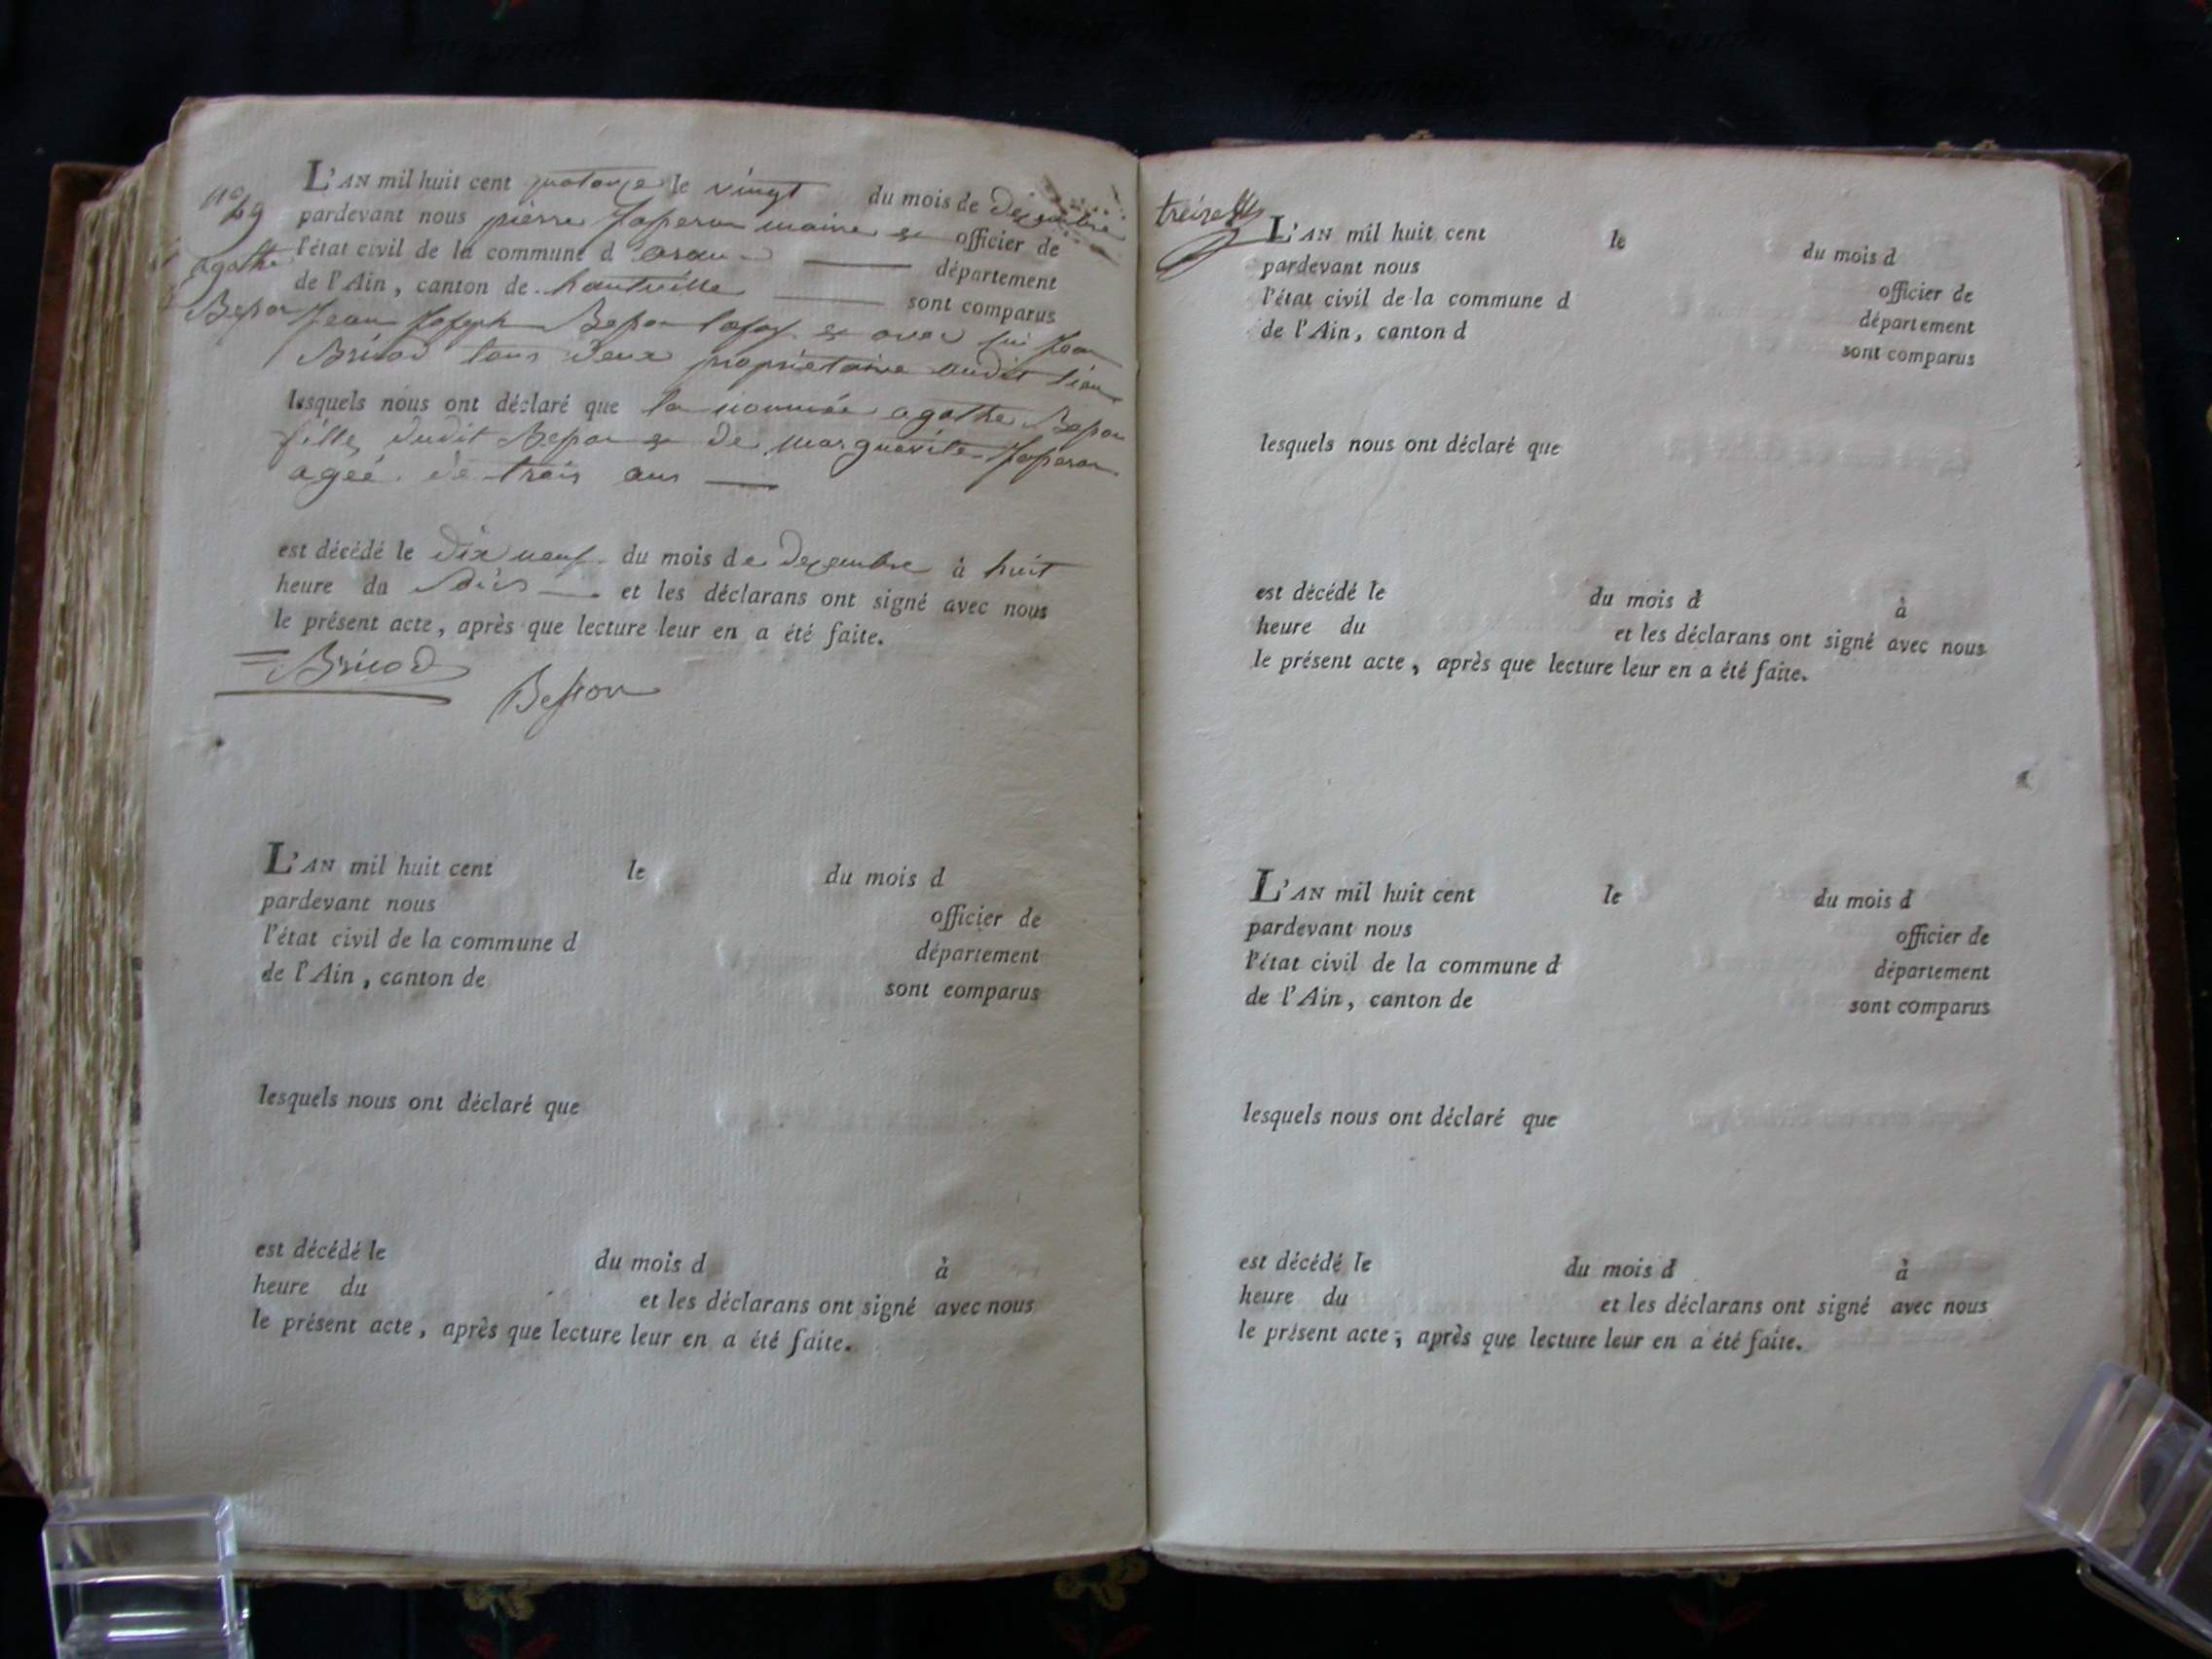 n° 49
agathe
Bepon
L'AN mil huit cent quatorze le vingt du mois de decembre
pardevant nous pierre maire et officier de
l'état civil de la commune d département
de l'Ain, canton de hauteville sont comparus
Jean Joseph Bepon et avec lui Jean
Bricod tous deux propriétaire audit lieu
lesquels nous ont déclaré que la nommée agathe Bepon
fille dudit Bepon et de marguerite
ageé de trois ans
est décédé le dix neuf du mois de decembre à huit
heure du soir et les déclarans ont signé avec nous
le présent acte, après que lecture leur en a été faite.
Bricod
Besson
L'AN mil huit cent le du mois d
pardevant nous officier de
l'état civil de la commune d département
de l'Ain, canton de sont comparus
lesquels nous ont déclaré que
est décédé le du mois d à
heure du et les déclarans ont signé avec nous
le présent acte, après que lecture leur en a été faite.
L'AN mil huit cent le du mois d
pardevant nous officier de
l'état civil de la commune d département
de l'Ain, canton d sont comparus
lesquels nous ont déclaré que
est décédé le du mois d à
heure du et les déclarans ont signé avec nous
le présent acte, après que lecture leur en a été faite.
L'AN mil huit cent le du mois d
pardevant nous officier de
l'état civil de la commune d département
de l'Ain, canton de sont comparus
lesquels nous ont déclaré que
est décédé le du mois d à
heure du et les déclarans ont signé avec nous
le présent acte, après que lecture leur en a été faite.